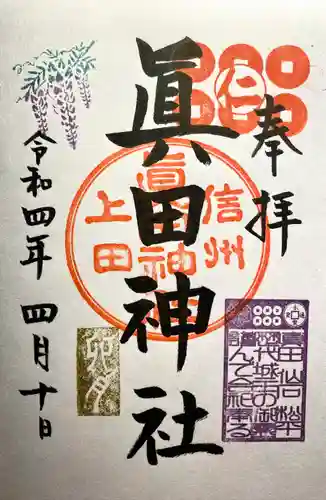 奉拝
眞田神社
信州
眞田神社
上田
卯月
眞田 仙石 松平
歴代城主の御霊
謹んで合祀奉る
令和四年 四月十日